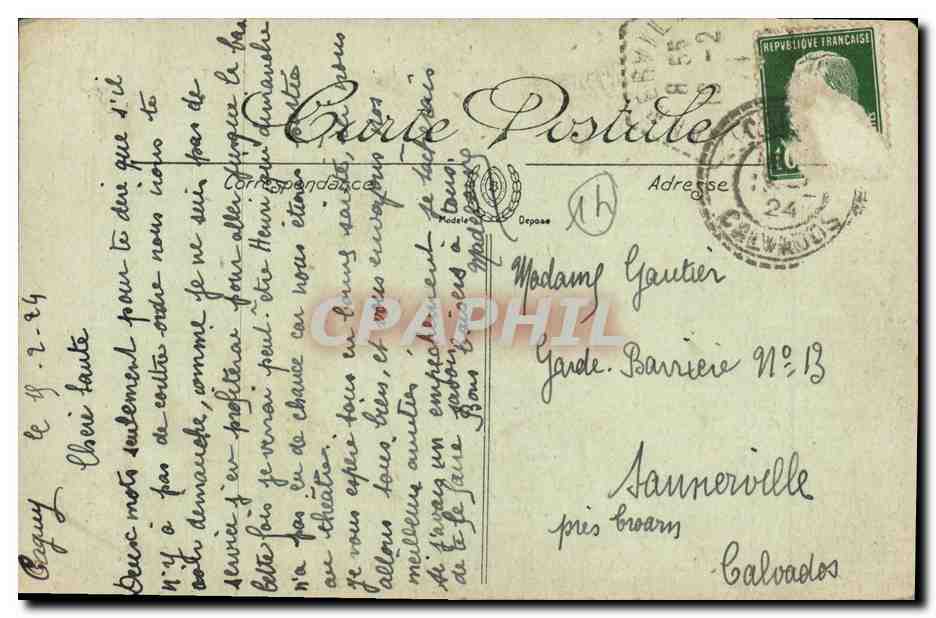 Carte Postale
Correspondance
Adresse
Modèle Déposé
B
REPUBLIQUE FRANÇAISE
10
8 55
19 -2
24
CALVADOS
1h
CPAPHIL
le 15-2-24
Chère tante
Deux mots seulement pour te dire que s'il
n'y a pas de contre ordre nous irons te
voir dimanche, comme je ne suis pas de
service j'en profiterai pour aller jusque la bas
Cette fois je verrai peut-être Henri car dimanche
n'a pas eu de chance car nous étions
au théâtre
je vous espère tous en bonne santé, ici nous
allons tous bien, et vous envoyons nos
meilleures amitiés
si j'avais un empêchement je tâcherais
de te le faire savoir
Bons baisers à tous
Madeleine
Madame Gautier
Garde-Barrière N° 13
Sannerville
près Troarn
Calvados